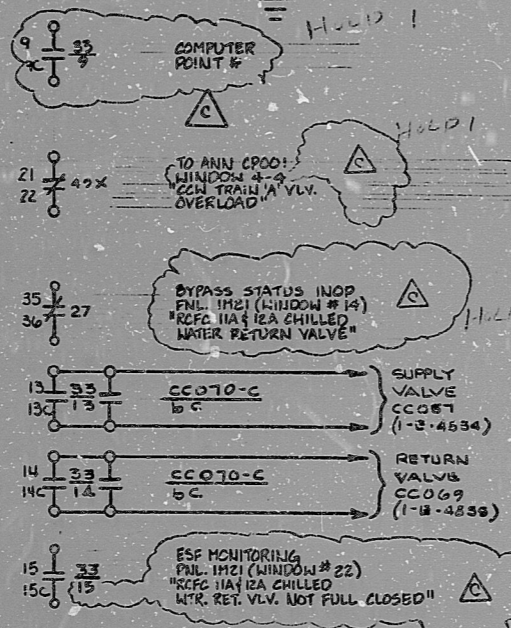 HOLD !
9
9C
33
9
COMPUTER
POINT #
C
HOLD !
21
22
49X
TO ANN CP00!
WINDOW 4-4
"CCW TRAIN 'A' VLV.
OVERLOAD"
C
35
36
27
BYPASS STATUS INOP
PNL. 1M21 (WINDOW # 14)
"RCFC 11A & 12A CHILLED
WATER RETURN VALVE"
C
13
13C
33
13
CC070-C
b C
SUPPLY
VALVE
CC057
14
14C
33
14
CC070-C
b C
RETURN
VALVE
CC069
15
15C
33
15
ESF MONITORING
PNL. 1M21 (WINDOW # 22)
"RCFC 11A & 12A CHILLED
WTR. RET. VLV. NOT FULL CLOSED"
C